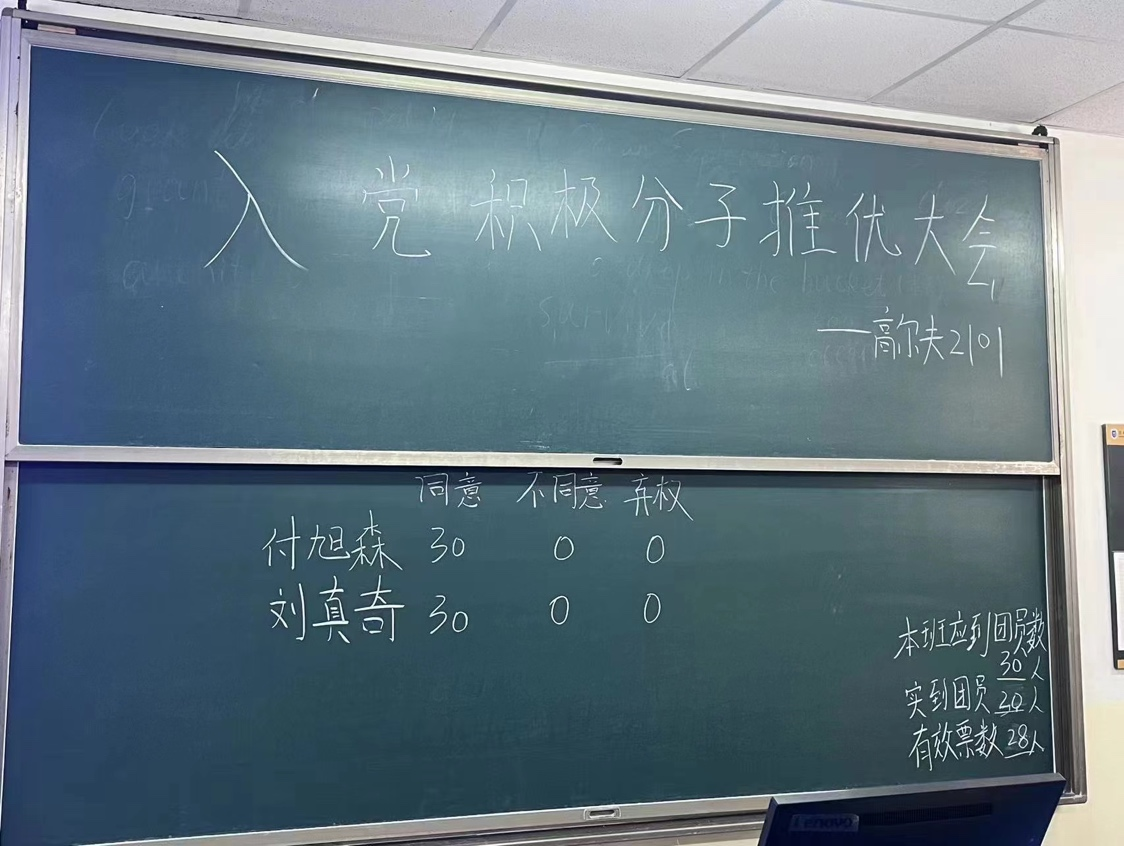 入党积极分子推优大会
——高尔夫2101
同意 不同意 弃权
付旭森 30 0 0
刘真奇 30 0 0
本班应到团员数
30人
实到团员30人
有效票数28人
Lenovo